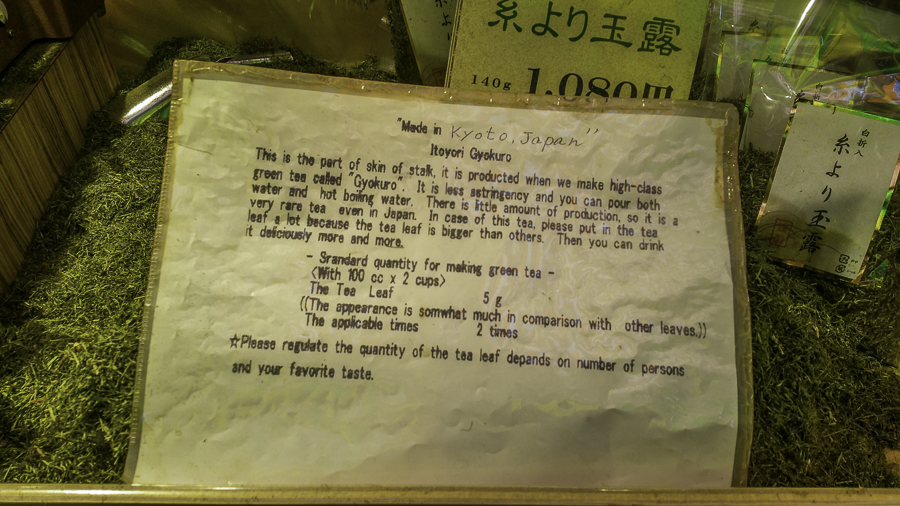 糸より玉露
140g 1,080円
"Made in Kyoto, Japan"
Itoyori Gyokuro
This is the part of skin of stalk, it is producted when we make high-class
green tea called "Gyokuro". It is less astringency and you can pour both
water and hot boiling water. There is little amount of production, so it is a
very rare tea even in Japan. In case of this tea, please put in the tea
leaf a lot because the tea leaf is bigger than others. Then you can drink
it deliciously more and more.
- Srandard quantity for making green tea -
<With 100 cc x 2 cups>
The Tea Leaf 5 g
((The appearance is somwhat much in comparison with other leaves.))
The applicable times 2 times
☆Please regulate the quantity of the tea leaf depends on number of persons
and your favorite taste.
白折入
糸より玉露